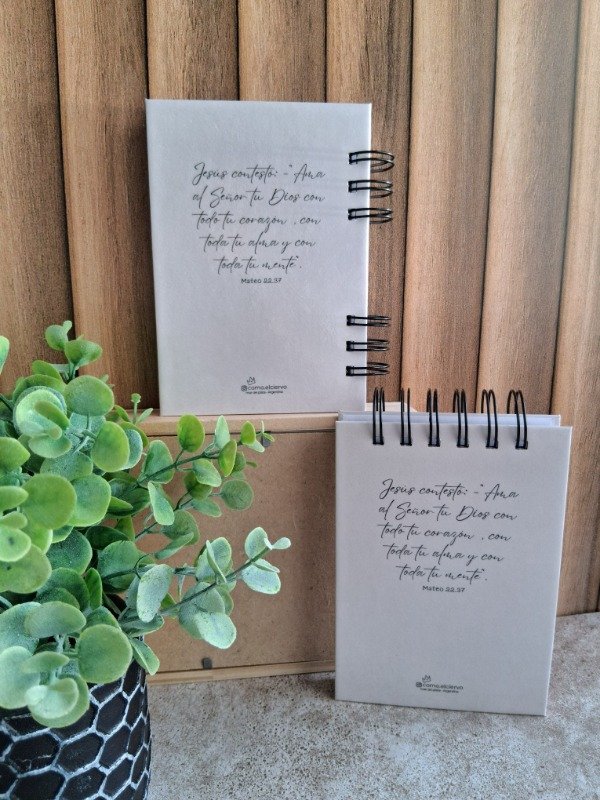 Jesús contesto: -"Ama
al Señor tu Dios con
todo tu corazón , con
toda tu alma y con
toda tu mente".
Mateo 22.37
@como.elciervo
mar de plata - Argentina
Jesús contesto: -"Ama
al Señor tu Dios con
todo tu corazón , con
toda tu alma y con
toda tu mente".
Mateo 22.37
@como.elciervo
mar de plata - Argentina